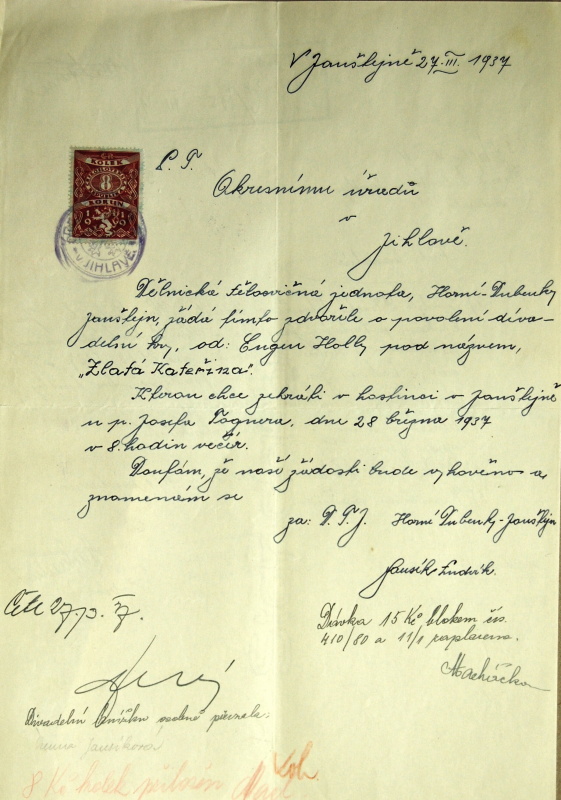 V Janštejně 27. III. 1937
KOLEK
8
KORUN
V JIHLAVĚ
P. T.
Okresnímu úřadů
v
Jihlavě.
Dělnická tělocvičná jednota, Horní-Dubenky
Janštejn, žádá tímto zdvořile o povolení diva-
delní hry, od: Eugen Holly pod názvem,
"Zlatá Kateřina".
Kterou chce zehráti v hostinci v Janštejně
u p. Josefa Pognera, dne 28 března 1937
v 8. hodin večír.
Doufám, že naší žádosti bude vyhověno a
znamenám se
za: D. T. J. Horní Dubenky-Janštejn
Jansík Ludvík.
Dávka 15 Kč blokem čís.
410/80 a 11/1 zaplacena.
Macháčka
Divadelní knížku osobně převzala:
Jansíková
8 Kč kolek přiložen